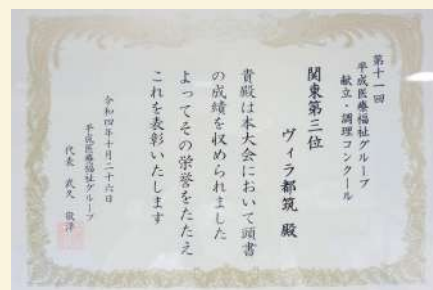 第十一回
平成医療福祉グループ
献立・調理コンクール
関東第三位
ヴィラ都筑 殿
貴殿は本大会において頭書
の成績を収められました
よってその栄誉をたたえ
これを表彰いたします
令和四年十月二十六日
平成医療福祉グループ
代表 武久 敬洋